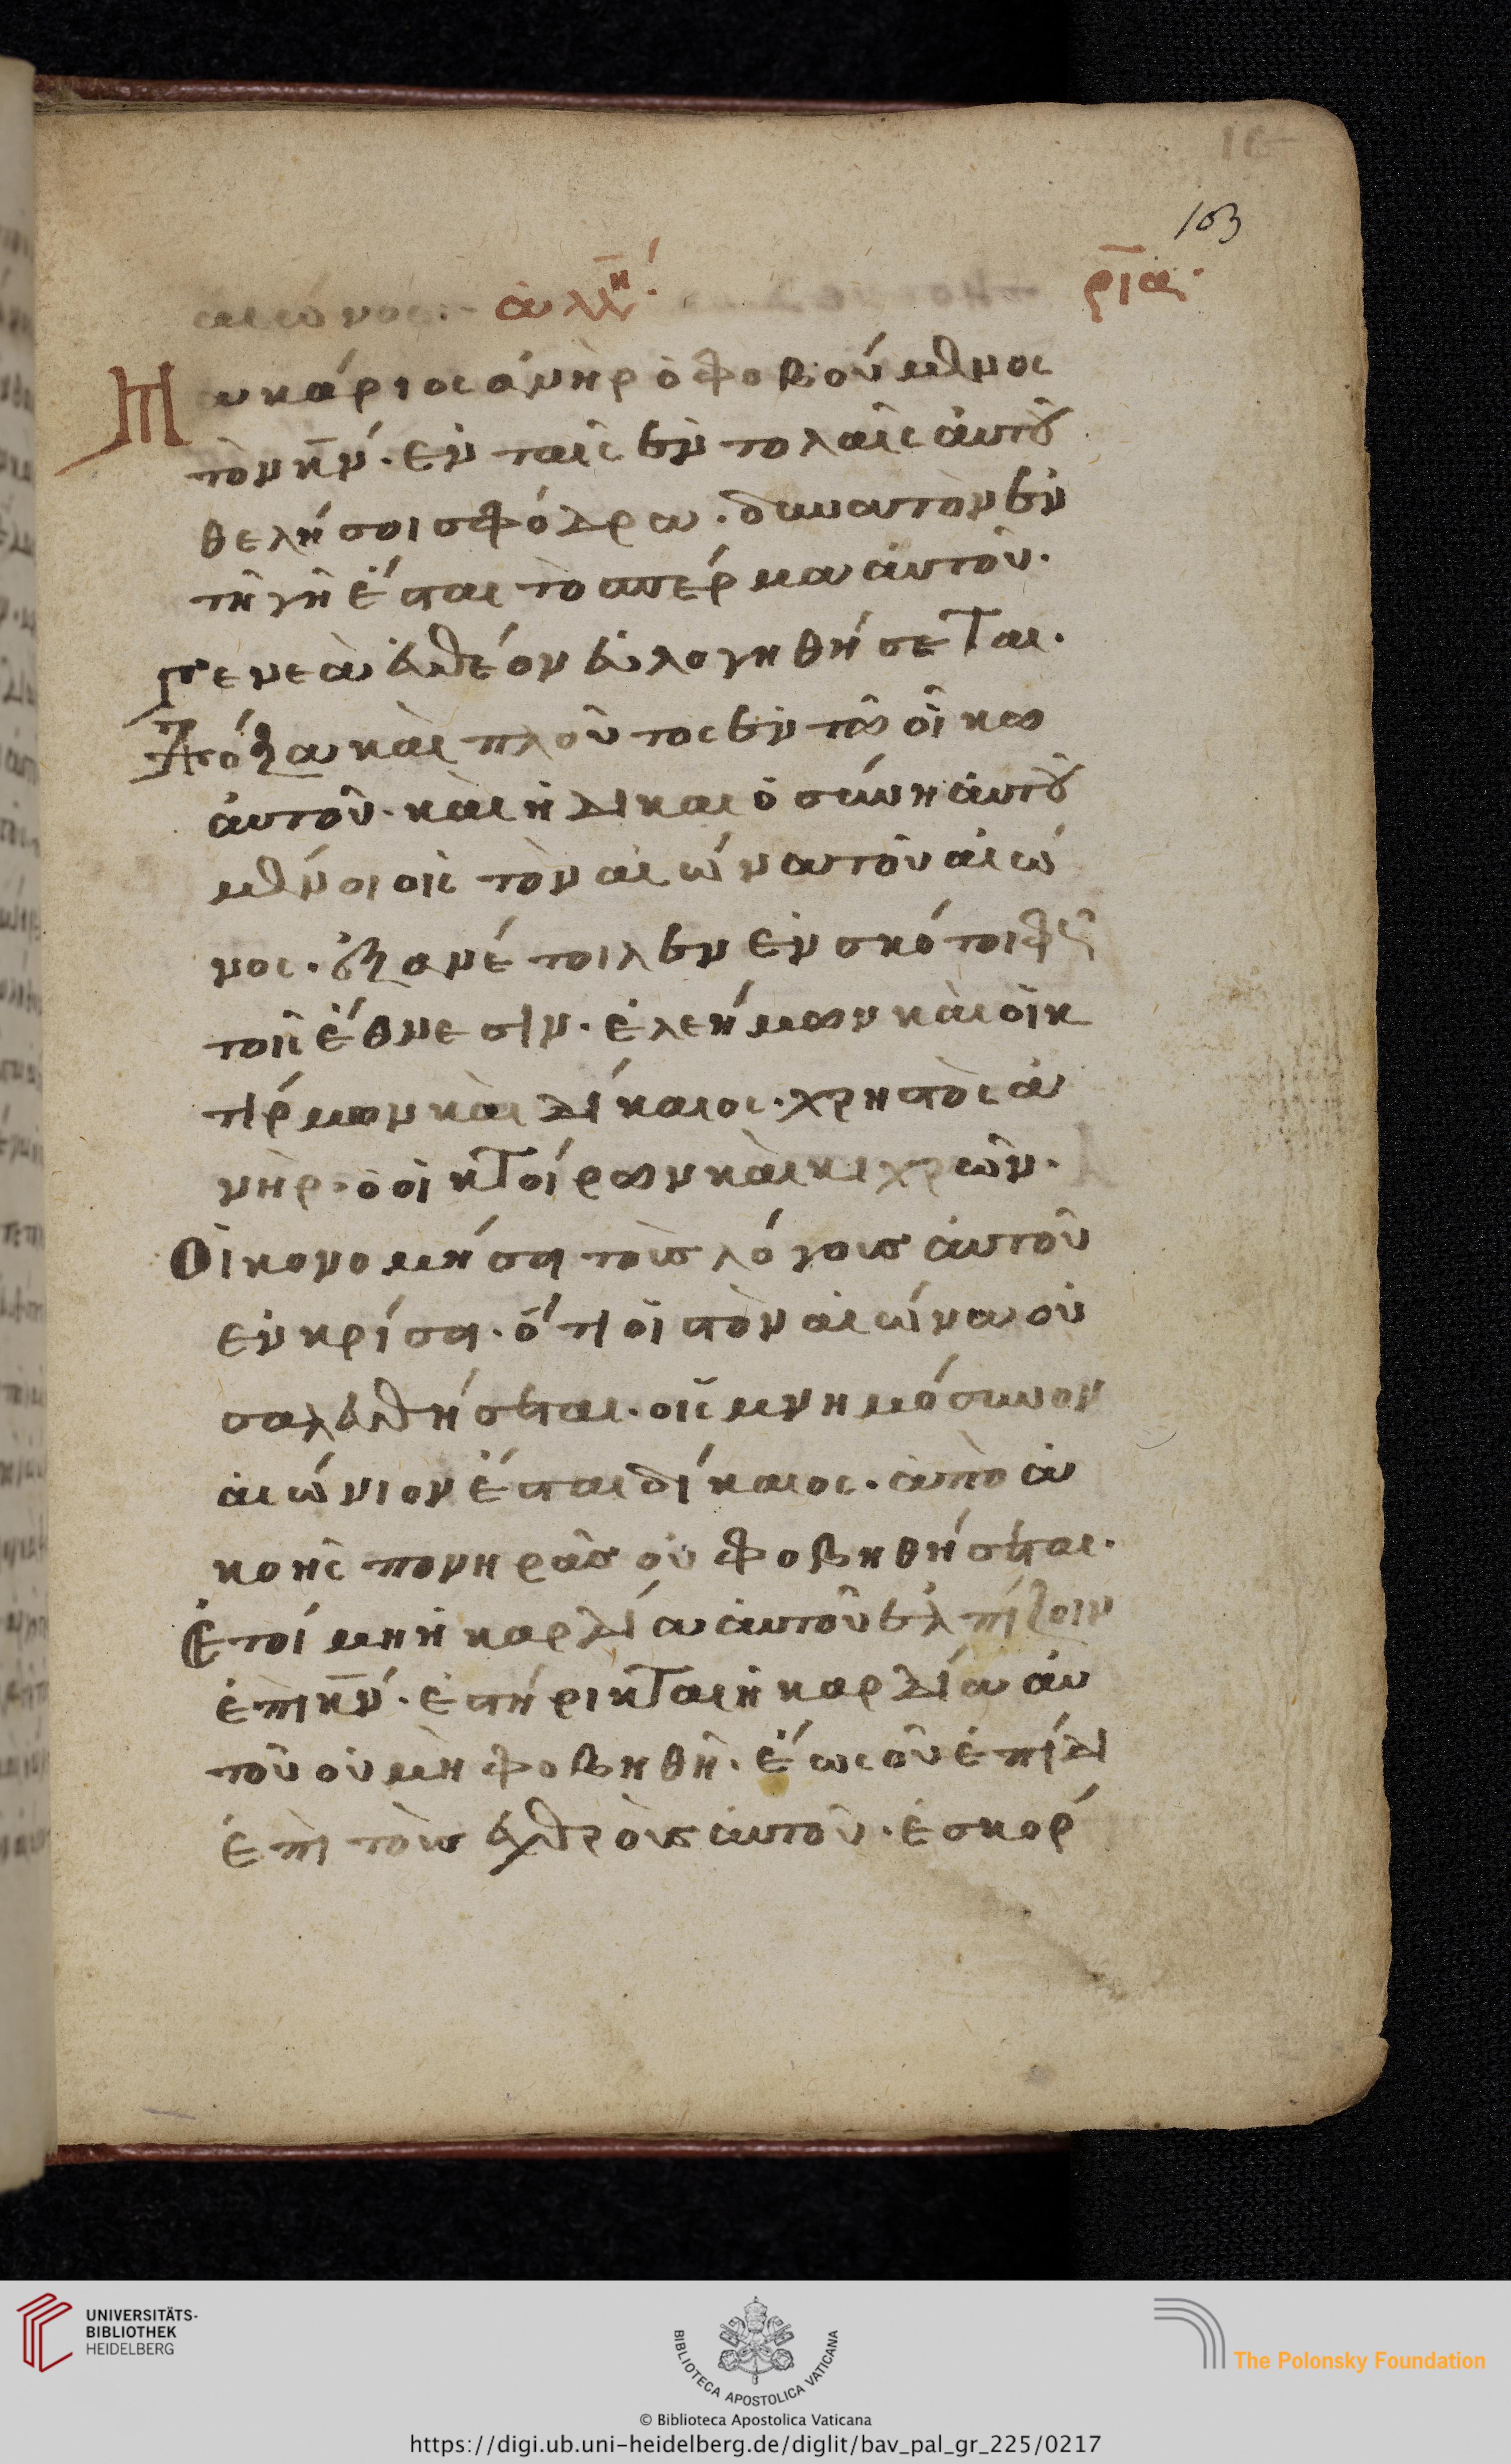 103
αἰῶνος:– ἀλλη΄. ρια·
Μακάριος ἀνὴρ ὁ φοβούμενος
τὸν κ̅ν̅. ἐν ταῖς ἐντολαῖς αὐτοῦ
θελήσει σφόδρα. δυνατὸν ἐν
τῆ γῆ ἔσται τὸ σπέρμα αὐτοῦ.
Γενεὰ εὐθέων εὐλογηθήσεται.
Δόξα καὶ πλοῦτος ἐν τῶ οἴκω
αὐτοῦ. καὶ ἡ δικαιοσύνη αὐτοῦ
μένει εἰς τὸν αἰῶνα τοῦ αἰῶ
νος. ἐξανέτειλεν ἐν σκότει φῶς
τοῖς ἔθνεσιν. ἐλεήμων καὶ οἰκ
τίρμων καὶ δίκαιος. χρηστὸς ἀ
νὴρ. ὁ οἰκτείρων καὶ κιχρῶν.
Οἰκονομήσει τοὺς λόγους αὐτοῦ
ἐν κρίσει. ὅτι εἰς τὸν αἰῶνα οὐ
σαλευθήσεται. εἰς μνημόσυνον
αἰώνιον ἔσται δίκαιος. ἀπὸ ἀ
κοῆς πονηρᾶς οὐ φοβηθήσεται.
Ἑτοίμη ἡ καρδία αὐτοῦ ἐλπίζειν
ἐπὶ κ̅ν̅. ἐστήρικται ἡ καρδία αὐ
τοῦ οὐ μὴ φοβηθῆ. ἕως οὗ ἐπίδη
ἐπὶ τοὺς ἐχθροὺς αὐτοῦ. ἐσκόρ
UNIVERSITÄTS-
BIBLIOTHEK
HEIDELBERG
BIBLIOTECA APOSTOLICA VATICANA
The Polonsky Foundation
© Biblioteca Apostolica Vaticana
https://digi.ub.uni-heidelberg.de/diglit/bav_pal_gr_225/0217